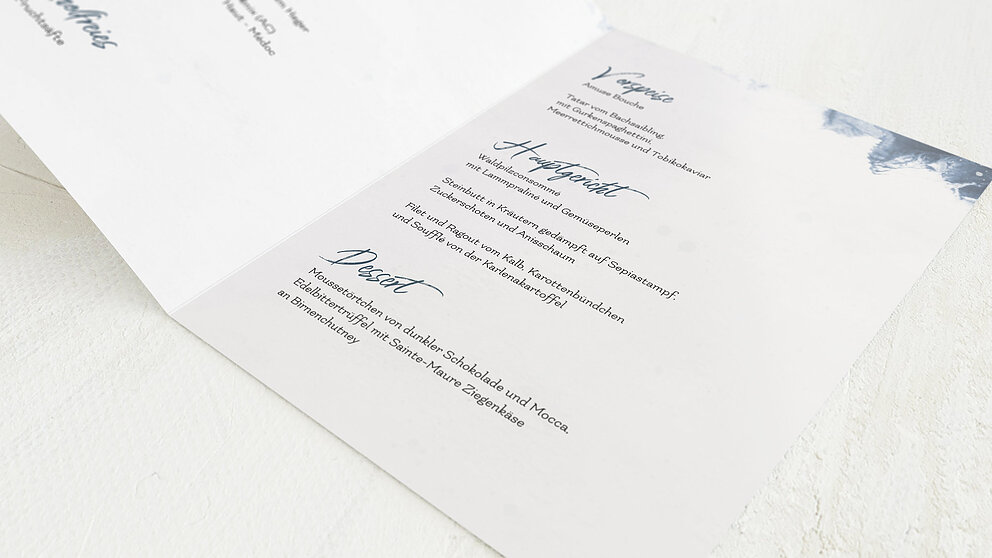 Hager
(AC)
Haut - Médoc
Vorspeise
Amuse Bouche
Tatar vom Bachsaibling
mit Gurkenspaghettini,
Meerrettichmousse und Tobikokaviar
Hauptgericht
Waldpilzconsommé
mit Lammpraliné und Gemüseperlen
Steinbutt in Kräutern gedämpft auf Sepiastampf,
Zuckerschoten und Anisschaum
Filet und Ragout vom Kalb, Karottenbündchen
und Soufflé von der Karlenakartoffel
Dessert
Moussetörtchen von dunkler Schokolade und Mocca,
Edelbittertrüffel mit Sainte-Maure Ziegenkäse
an Birnenchutney